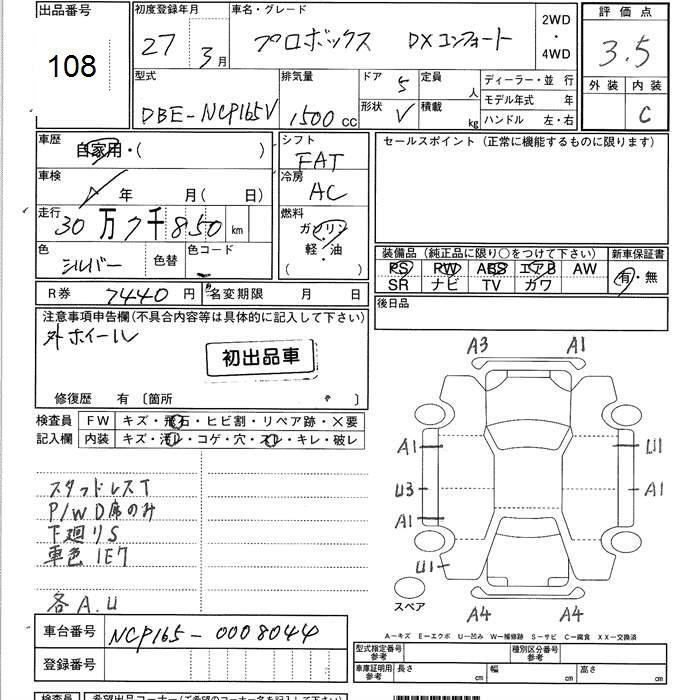 出品番号 初度登録年月 車名・グレード 2WD・4WD 評価点
108 27 3月 プロボックス DXコンフォート 3.5
型式 排気量 ドア 5 定員 人 ディーラー・並行 外装 内装
DBE-NCP165V 1500cc 形状 V 積載 kg モデル年式 年 C
ハンドル 左・右
車歴 シフト セールスポイント(正常に機能するものに限ります)
自家用・( ) FAT
車検 冷房
年 月(日) AC
走行 燃料
30万7千850km ガソリン
色 色替 色コード 軽・油
シルバー ( )
装備品(純正品に限り○をつけて下さい) 新車保証書
PS PW ABS エアB AW 有・無
SR ナビ TV カワ
R券 7440円 名変期限 月 日 後日品
注意事項申告欄(不具合内容等は具体的に記入して下さい)
外ホイール
初出品車
修復歴 有 〔箇所 〕
検査員 FW キズ・飛石・ヒビ割・リペア跡・×要
記入欄 内装 キズ・汚レ・コゲ・穴・スレ・キレ・破レ
A3 A1
A1 U1
U3 A1
A1
U1
スペア
A4 A4
スタッドレスT
P/W D席のみ
下廻りS
車色 1E7
各A.U
A-キズ E-エクボ U-凹み W-補修跡 S-サビ C-腐食 XX-交換済
車台番号 NCP165-0008044
登録番号
型式指定番号 参考 種別区分番号 参考
車庫証明用 参考 長さ cm 幅 cm 高さ cm
検査員 希望出品コーナー(ご希望のコーナー名を記入して下さい)